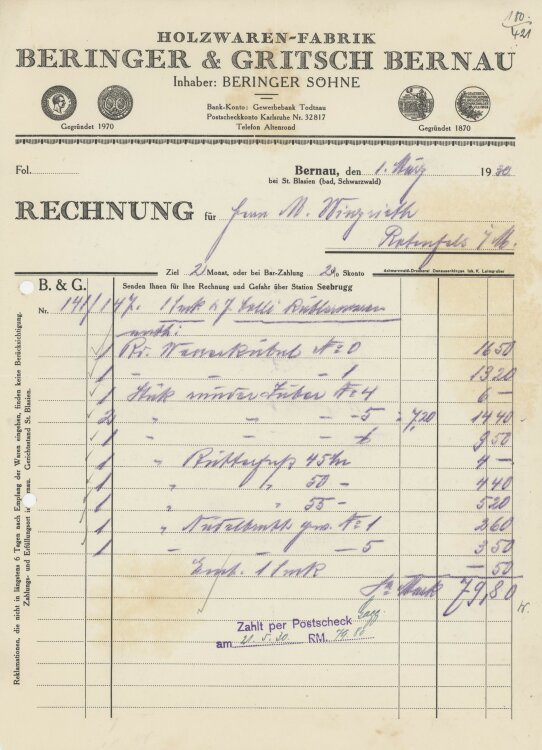 180/421
HOLZWAREN-FABRIK
BERINGER & GRITSCH BERNAU
Inhaber: BERINGER SÖHNE
Bank-Konto: Gewerbebank Todtnau
Postscheckkonto Karlsruhe Nr. 32817
Telefon Altenrond
Gegründet 1970
Gegründet 1870
Fol.
Bernau, den 1. März 1930
bei St. Blasien (bad, Schwarzwald)
RECHNUNG für Herrn M.
Rotenfels i/M.
Ziel 2 Monat, oder bei Bar-Zahlung 2% Skonto
Schwarzwald-Druckerei Donaueschingen Inh. K. Leimgruber
B. & G.
Senden Ihnen für Ihre Rechnung und Gefahr über Station Seebrugg
Nr. 141/147. 1 Sack & 7 Colli Küblerwaren
enth:
1 Pr. Wasserkübel No 0 16 50
1 – – – 1 13 20
1 Stük runder Zuber No 4 6 –
2 " – – – 5 à 7,20 14 40
1 " – – – 6 9 50
1 " 45 4 –
1 " " 50 – 4 40
1 " " 55 – 5 20
1 " No 1 2 60
1 – – – 5 3 50
Emb. 1 Sack – 50
Sa Mark 79,80
Zahlt per Postscheck
am 21.5.30 RM.
Reklamationen, die nicht in längstens 6 Tagen nach Empfang der Waren eingehen, finden keine Berücksichtigung.
Zahlungs- und Erfüllungsort Bernau. Gerichtsstand St. Blasien.